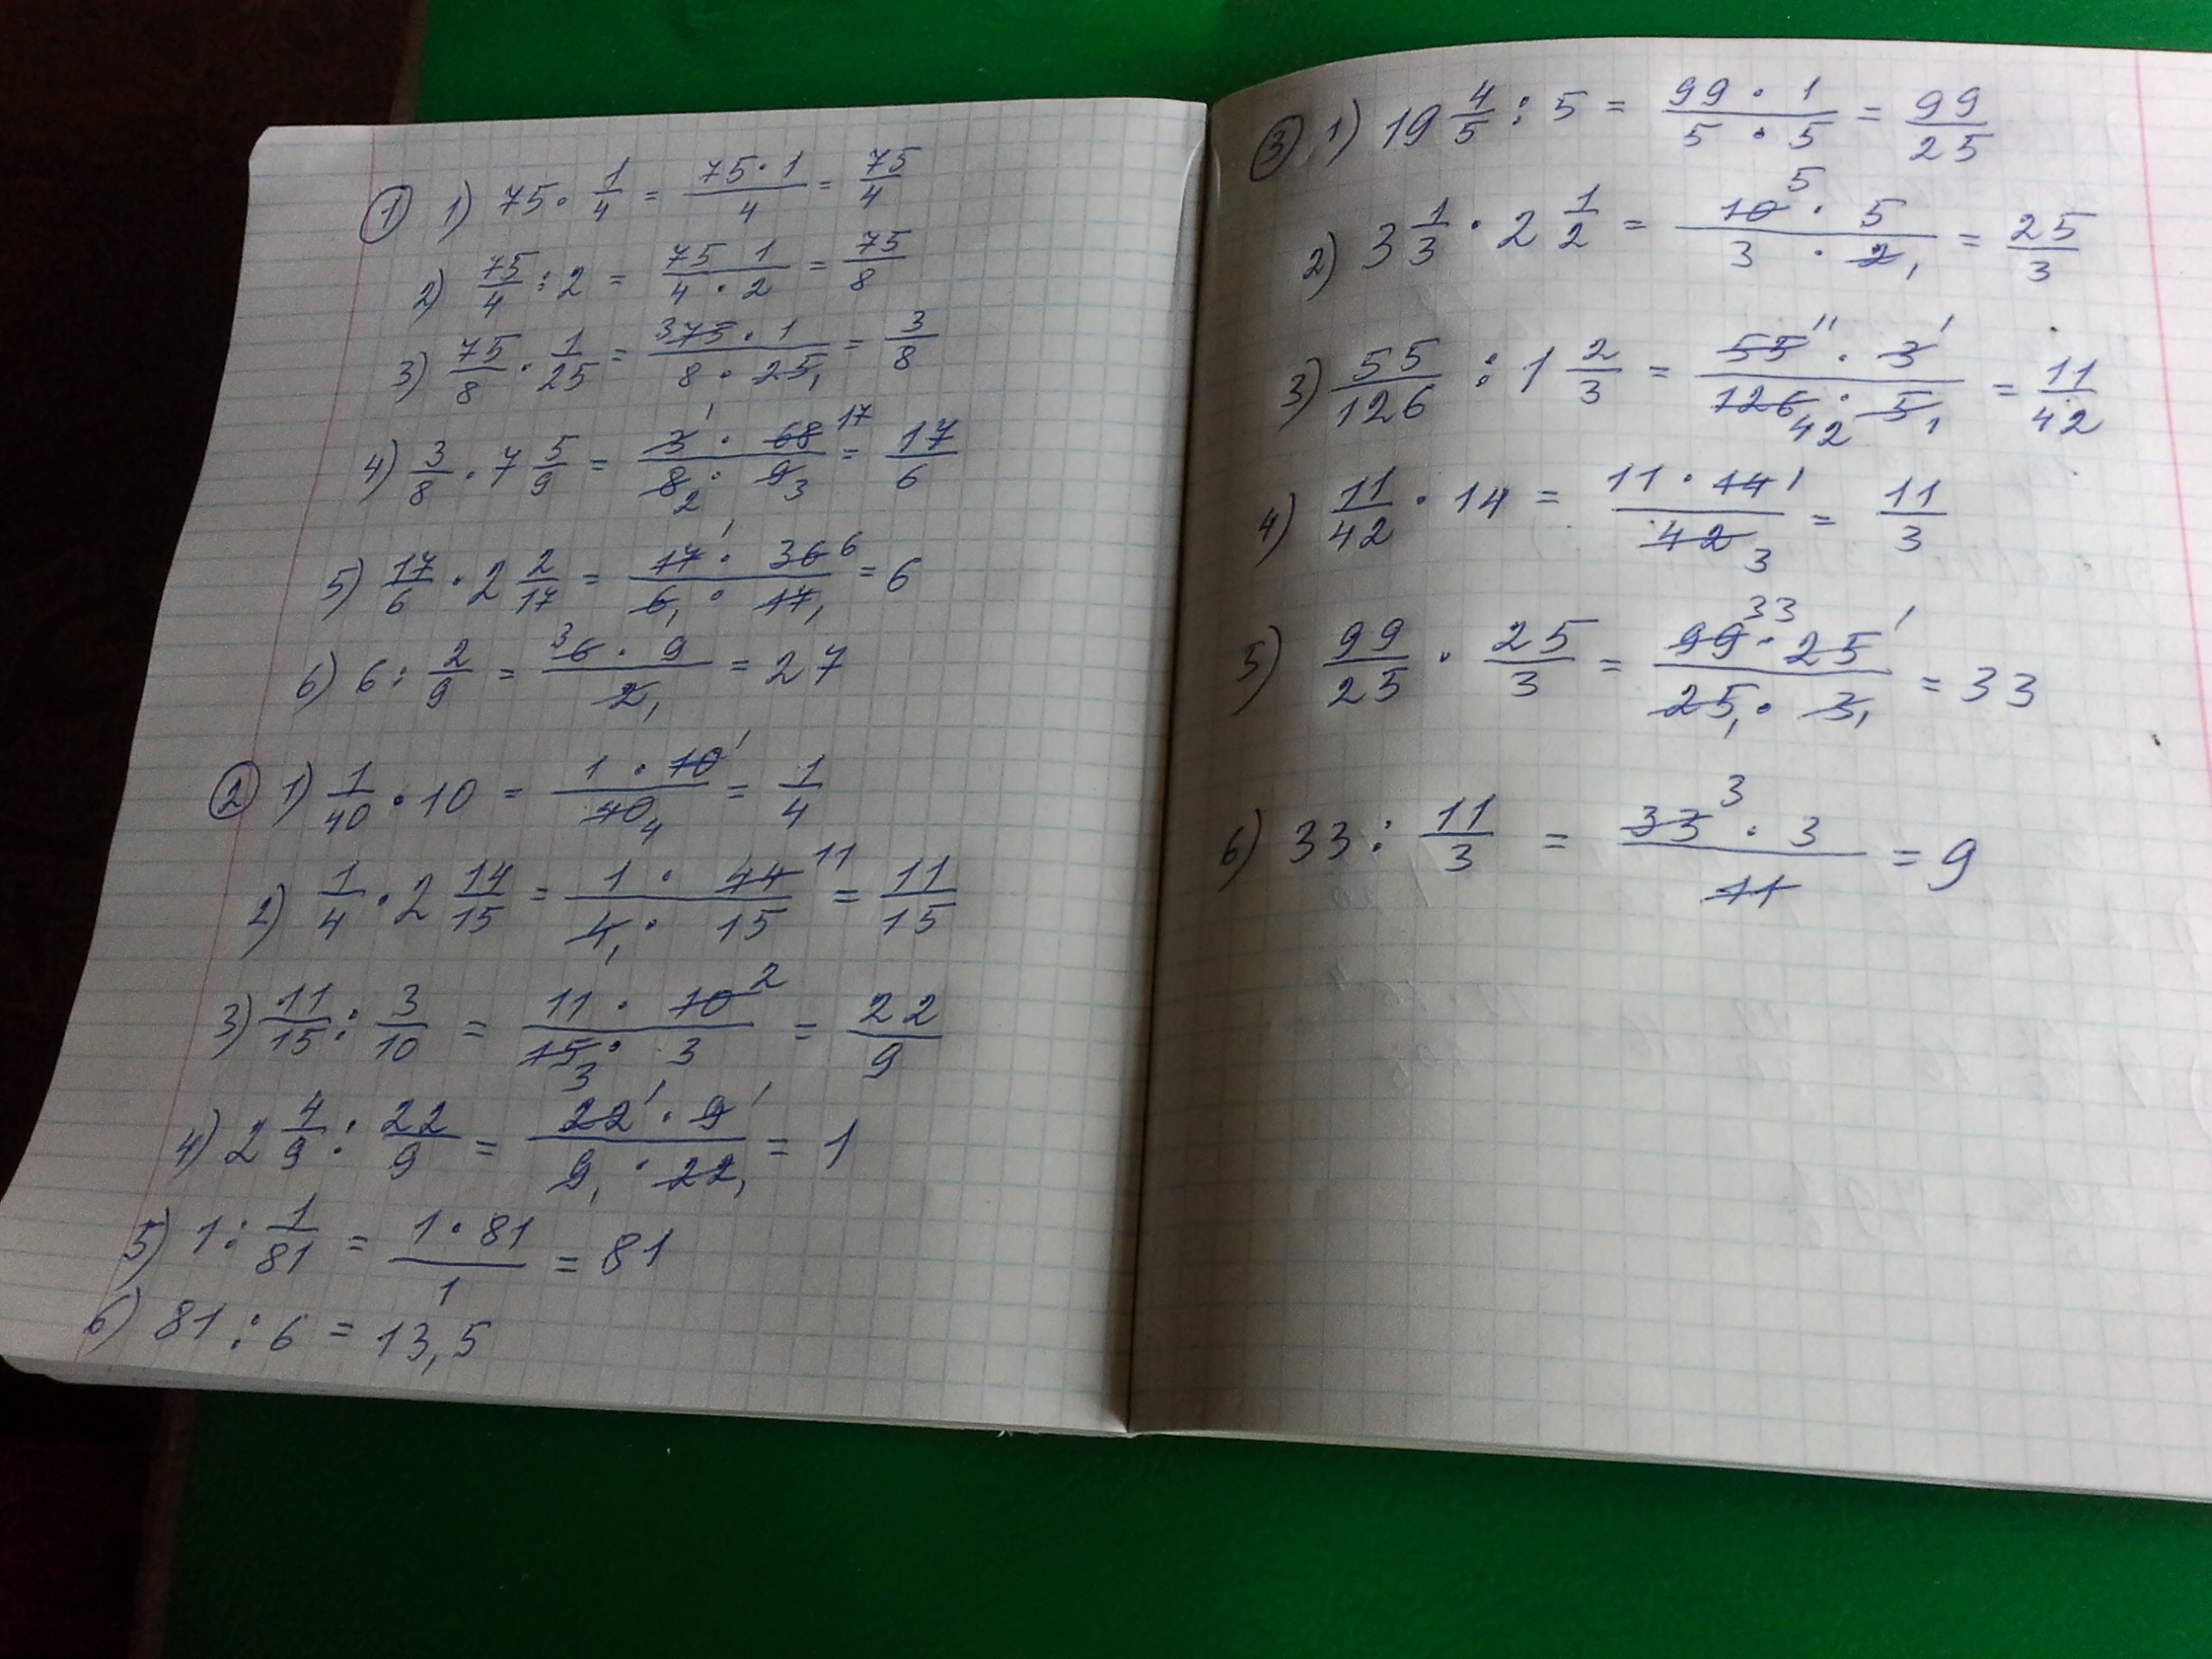 ① 1) 75 · 1/4 = 75·1/4 = 75/4
2) 75/4 : 2 = 75·1/4·2 = 75/8
3) 75/8 · 1/25 = 3 75·1/8·25 1 = 3/8
4) 3/8 · 7 5/9 = 3 1·68 17/8 2·9 3 = 17/6
5) 17/6 · 2 2/17 = 17 1·36 6/6 1·17 1 = 6
6) 6 : 2/9 = 3 6·9/2 1 = 27
② 1) 1/40 · 10 = 1·10 1/40 4 = 1/4
2) 1/4 · 2 14/15 = 1·44 11/4 1·15 = 11/15
3) 11/15 : 3/10 = 11·10 2/15 3·3 = 22/9
4) 2 4/9 : 22/9 = 22 1·9 1/9 1·22 1 = 1
5) 1 : 1/81 = 1·81/1 = 81
6) 81 : 6 = 13,5
③ 1) 19 4/5 : 5 = 99·1/5·5 = 99/25
2) 3 1/3 · 2 1/2 = 10 5·5/3·2 1 = 25/3
3) 55/126 : 1 2/3 = 55 11·3 1/126 42·5 1 = 11/42
4) 11/42 · 14 = 11·14 1/42 3 = 11/3
5) 99/25 · 25/3 = 99 33·25 1/25 1·3 1 = 33
6) 33 : 11/3 = 33 3·3/11 = 9